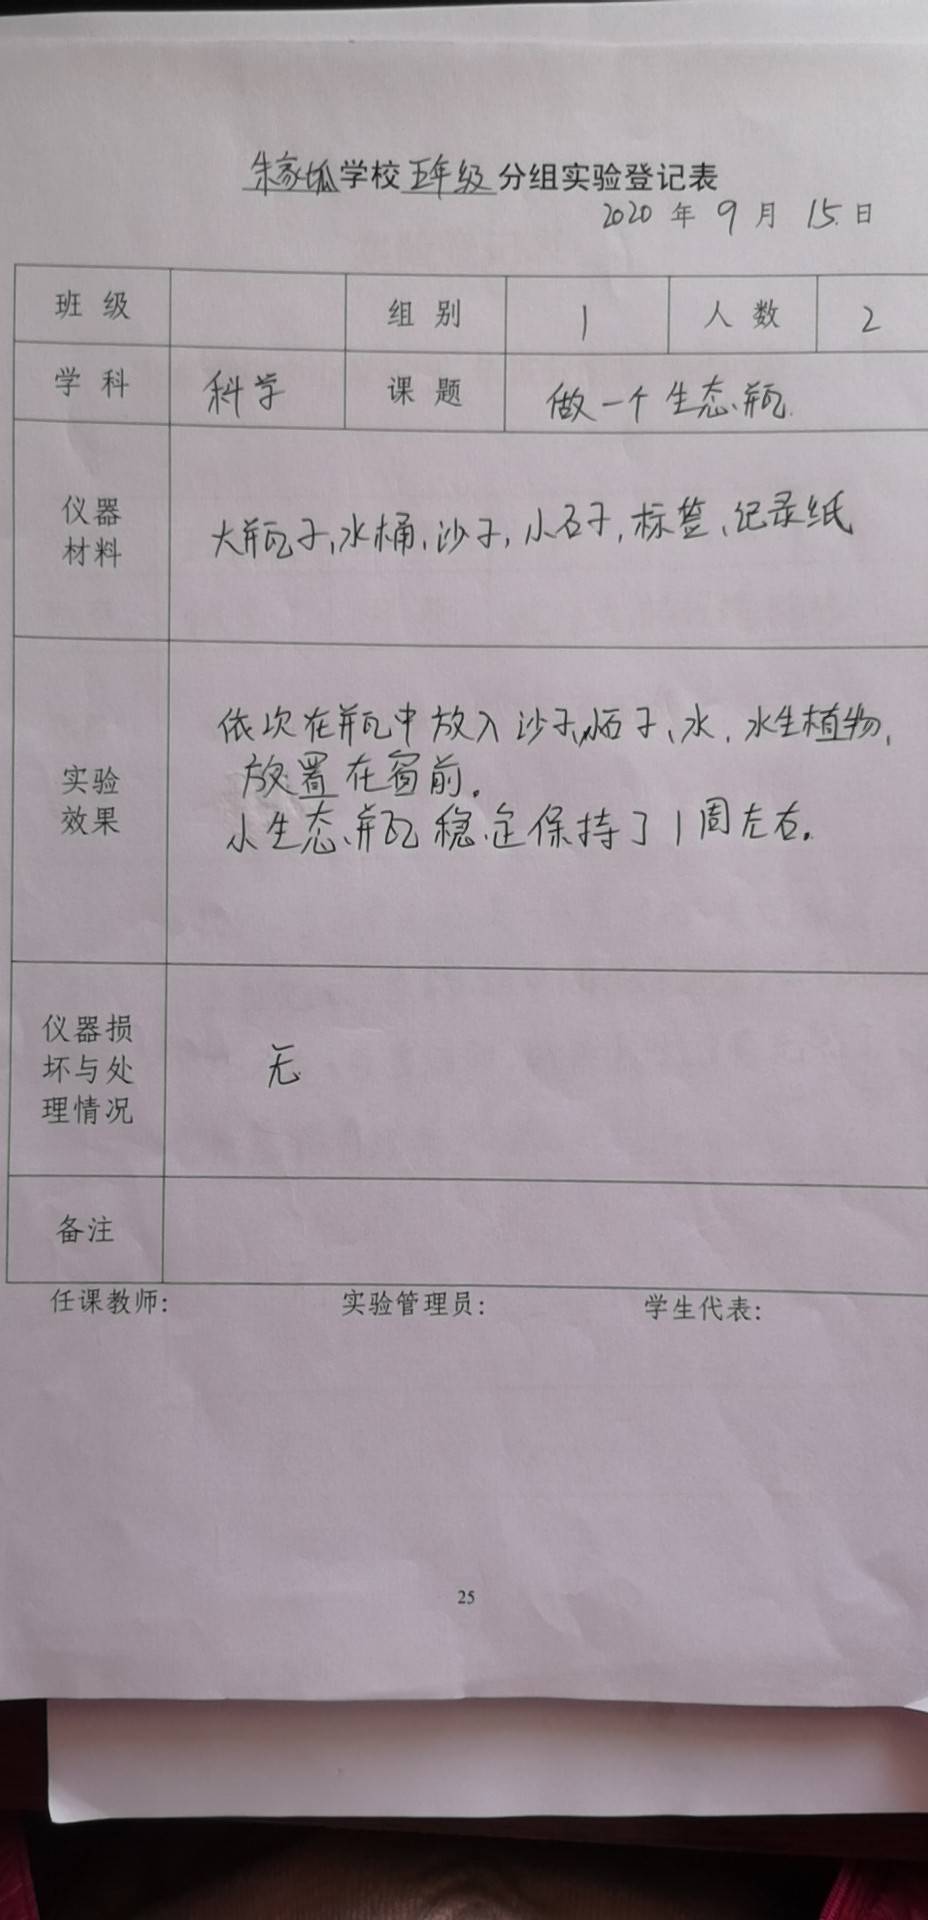 朱家坬学校五年级分组实验登记表
2020年9月15日
班级 组别 1 人数 2
学科 科学 课题 做一个生态瓶.
仪器
材料
大瓶子,水桶,沙子,小石子,标签,记录纸
实验
效果
依次在瓶中放入沙子,小石子、水,水生植物,
放置在窗前。
小生态瓶稳定保持了1周左右。
仪器损
坏与处
理情况
无
备注
任课教师: 实验管理员: 学生代表:
25